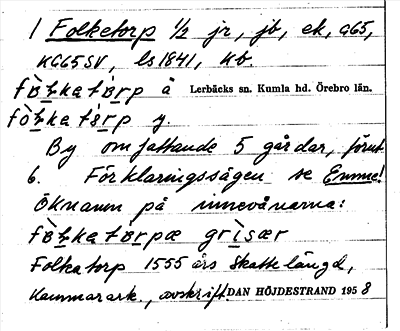 1 Folketorp 1/2 jr, jb, ek, G65,
KG65SV, ls 1841, kb.
fòlkatòrp å Lerbäcks sn. Kumla hd. Örebro län.
fòlkatòrp y.
By omfattande 5 gårdar, förut
6. Förklaringssägen se Emme!
Öknamn på innevånarna:
fòlkatòrpæ grìsær
Folkatorp 1555 års skattelängd,
Kammarark., avskrift. DAN HÖJDESTRAND 1958